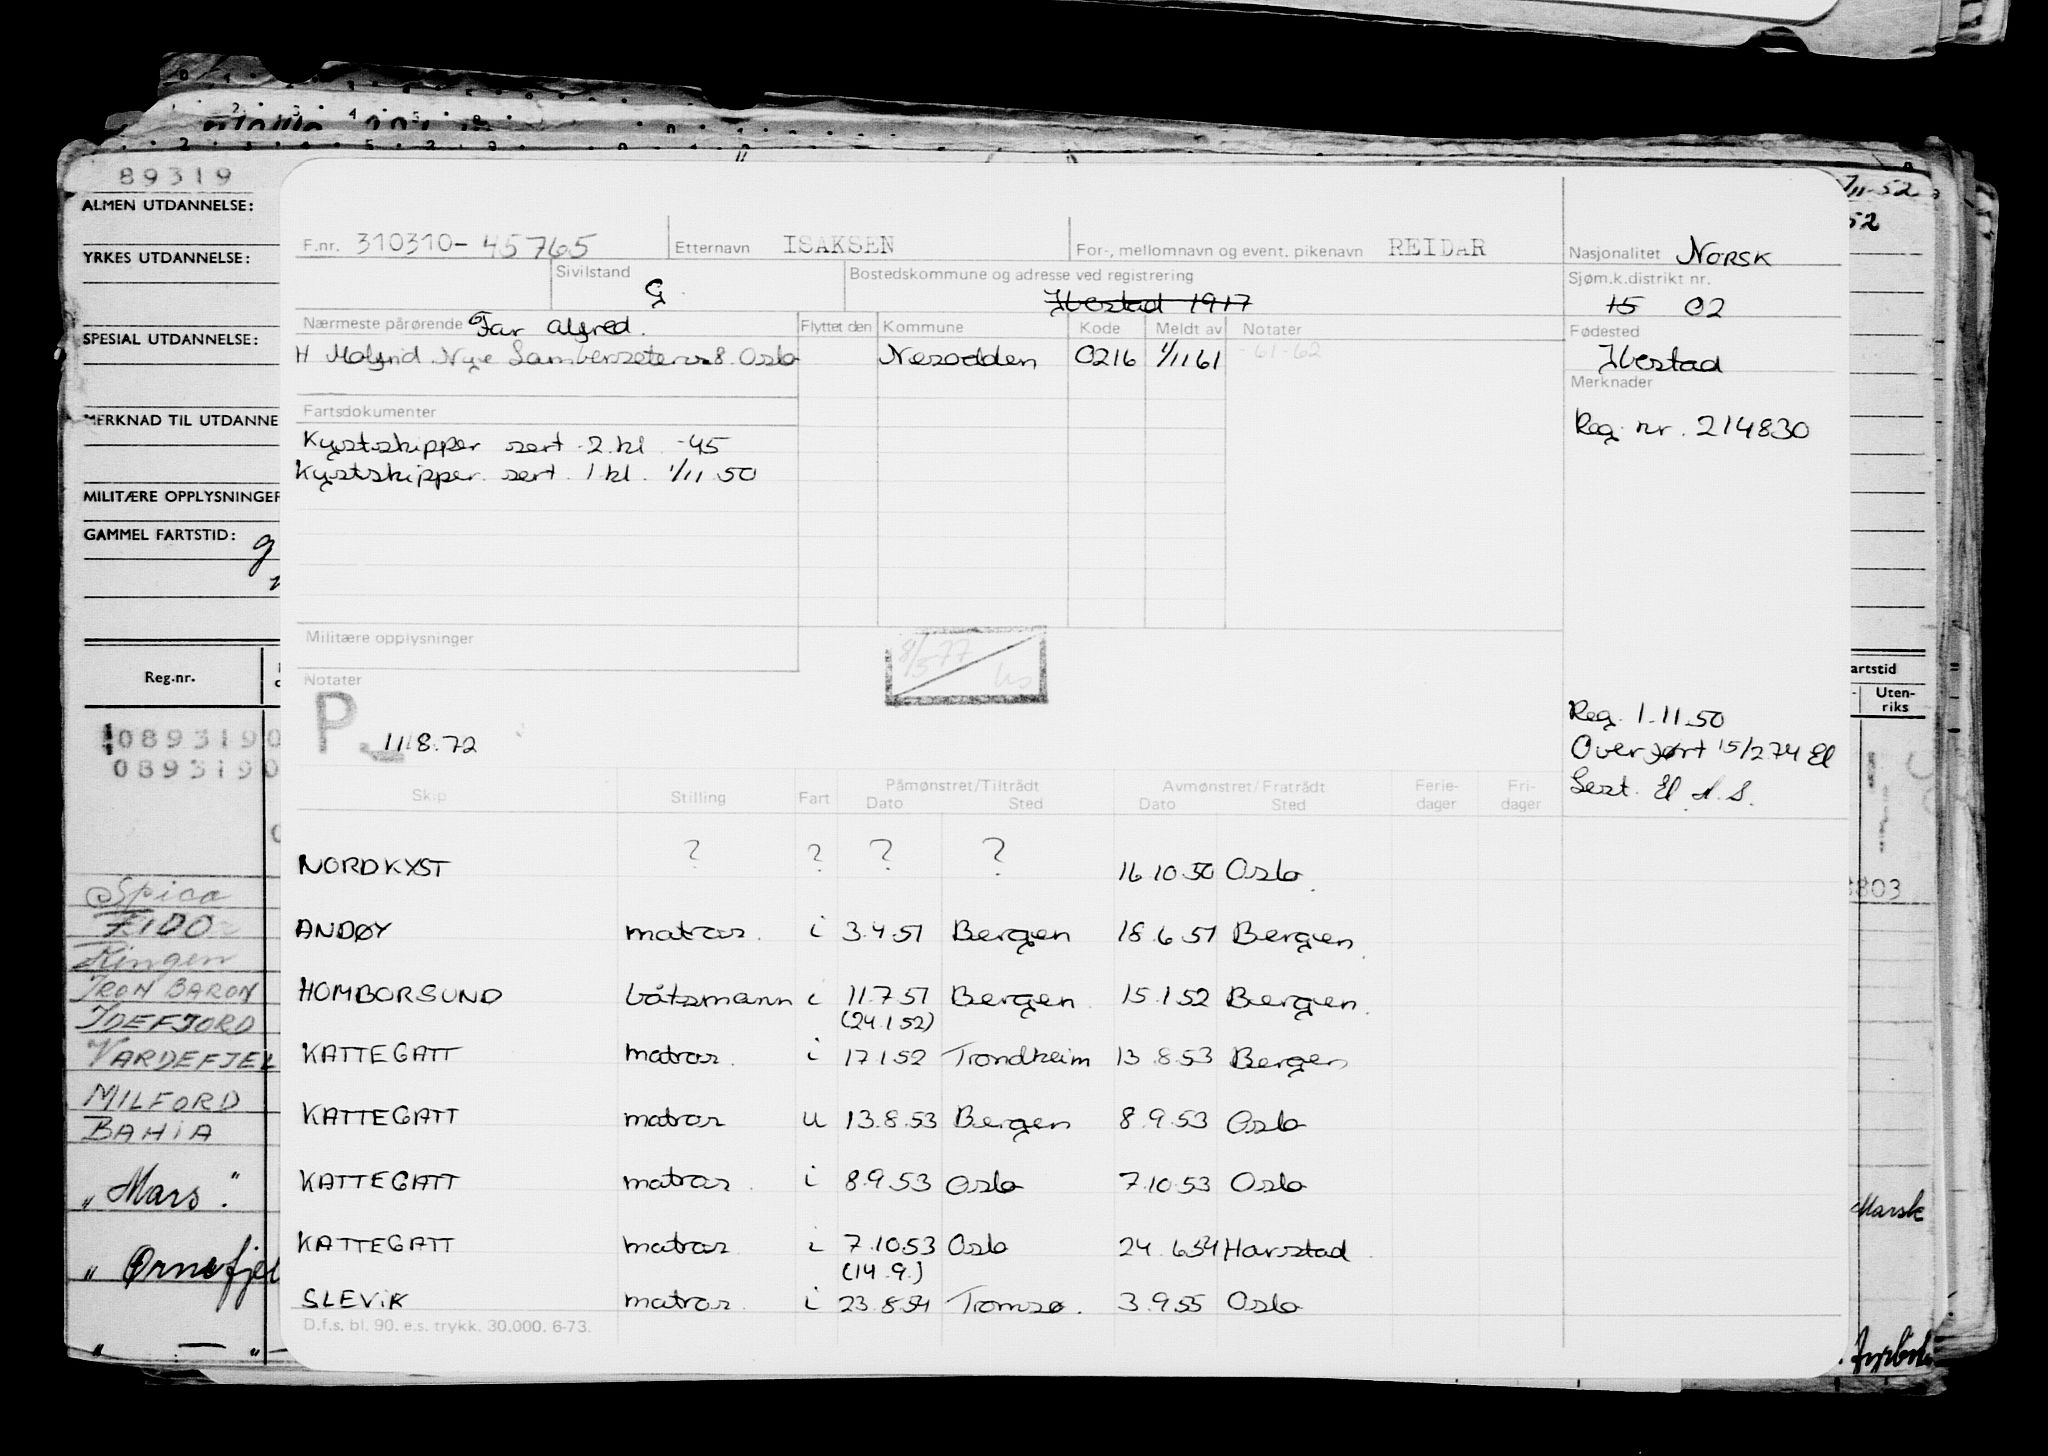 89319
ALMEN UTDANNELSE:
YRKES UTDANNELSE:
SPESIAL UTDANNELSE:
MERKNAD TIL UTDANNE
MILITÆRE OPPLYSNINGER
GAMMEL FARTSTID:
Reg.nr.
0893190
0893190
Spica
FIDO
Ringen
IRON BARON
IDEFJORD
VARDEFJEL
MILFORD
BAHIA
„ Mars."
„ Ørnefjel
„ — „
F.nr. 310310-45765 Etternavn ISAKSEN For-, mellomnavn og event. pikenavn REIDAR Nasjonalitet NORSK
Sivilstand G Bostedskommune og adresse ved registrering Ibestad 1917 Sjøm.k.distrikt nr. 15 02
Nærmeste pårørende Far Alfred. Flyttet den Kommune Kode Meldt av Notater Fødested Ibestad
Nye Lambertseter 8. Oslo Nesodden 0216 1/11 61 -61-62
Merknader
Reg. nr. 214830
Fartsdokumenter
Kystskipper sert. 2. kl. -45
Kystskipper. sert. 1 kl. 1/11 50
Militære opplysninger
8/3 77
Notater
P. 11.8.72
Reg. 1.11.50
Overført 15/2 74 El
Sert. El. A. S.
Skip Stilling Fart Påmønstret/Tiltrådt Dato Sted Avmønstret/Fratrådt Dato Sted Ferie-dager Fri-dager
NORDKYST ? ? ? ? 16.10.50 Oslo.
ANDØY matros. i 3.4.51 Bergen 18.6.51 Bergen.
HOMBORSUND båtsmann i 11.7.51 Bergen. 15.1.52 Bergen.
(24.1.52)
KATTEGATT matros. i 17.1.52 Trondheim 13.8.53 Bergen
KATTEGATT matros u 13.8.53 Bergen 8.9.53 Oslo
KATTEGATT matros. i 8.9.53 Oslo 7.10.53 Oslo
KATTEGATT matros. i 7.10.53 Oslo 24.6.54 Harstad.
(14.9.)
SLEVIK matros. i 23.8.54 Tromsø. 3.9.55 Oslo
D.f.s. bl. 90. e.s. trykk. 30.000. 6-73.
/11-52
52
artstid
Uten-
riks
803
Marsk